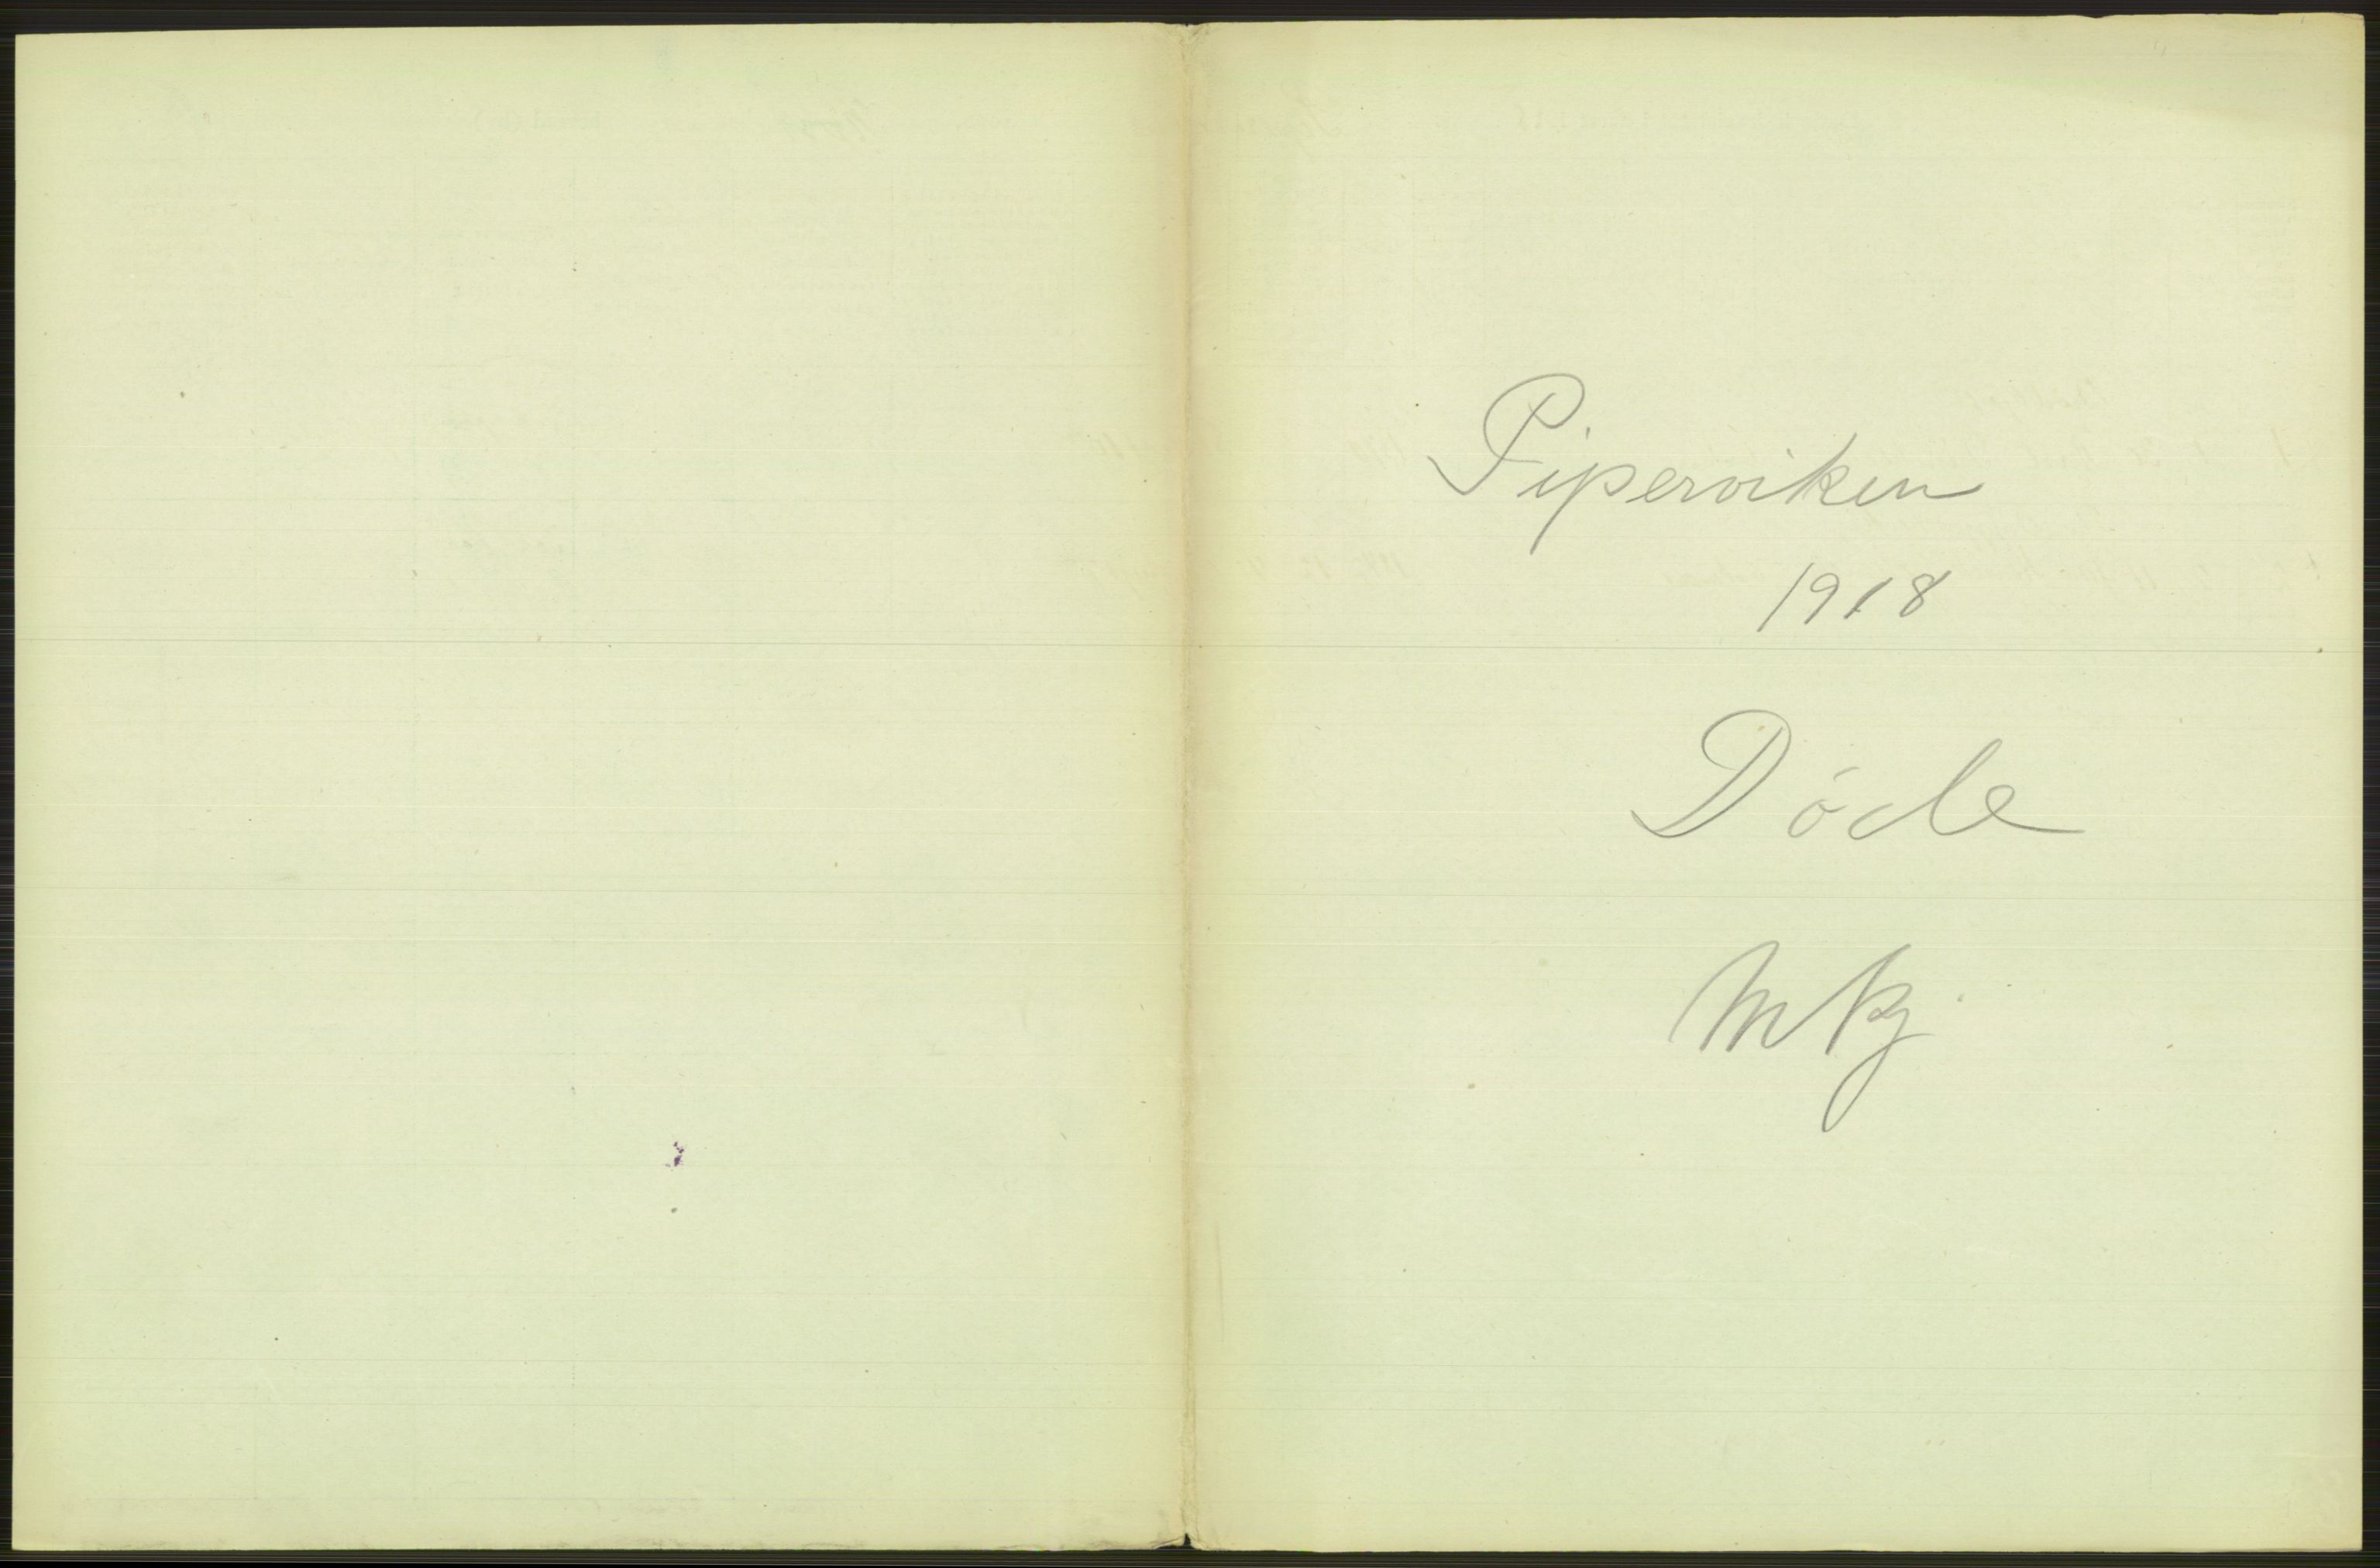 Piperviken
1918
Døde
Mkj